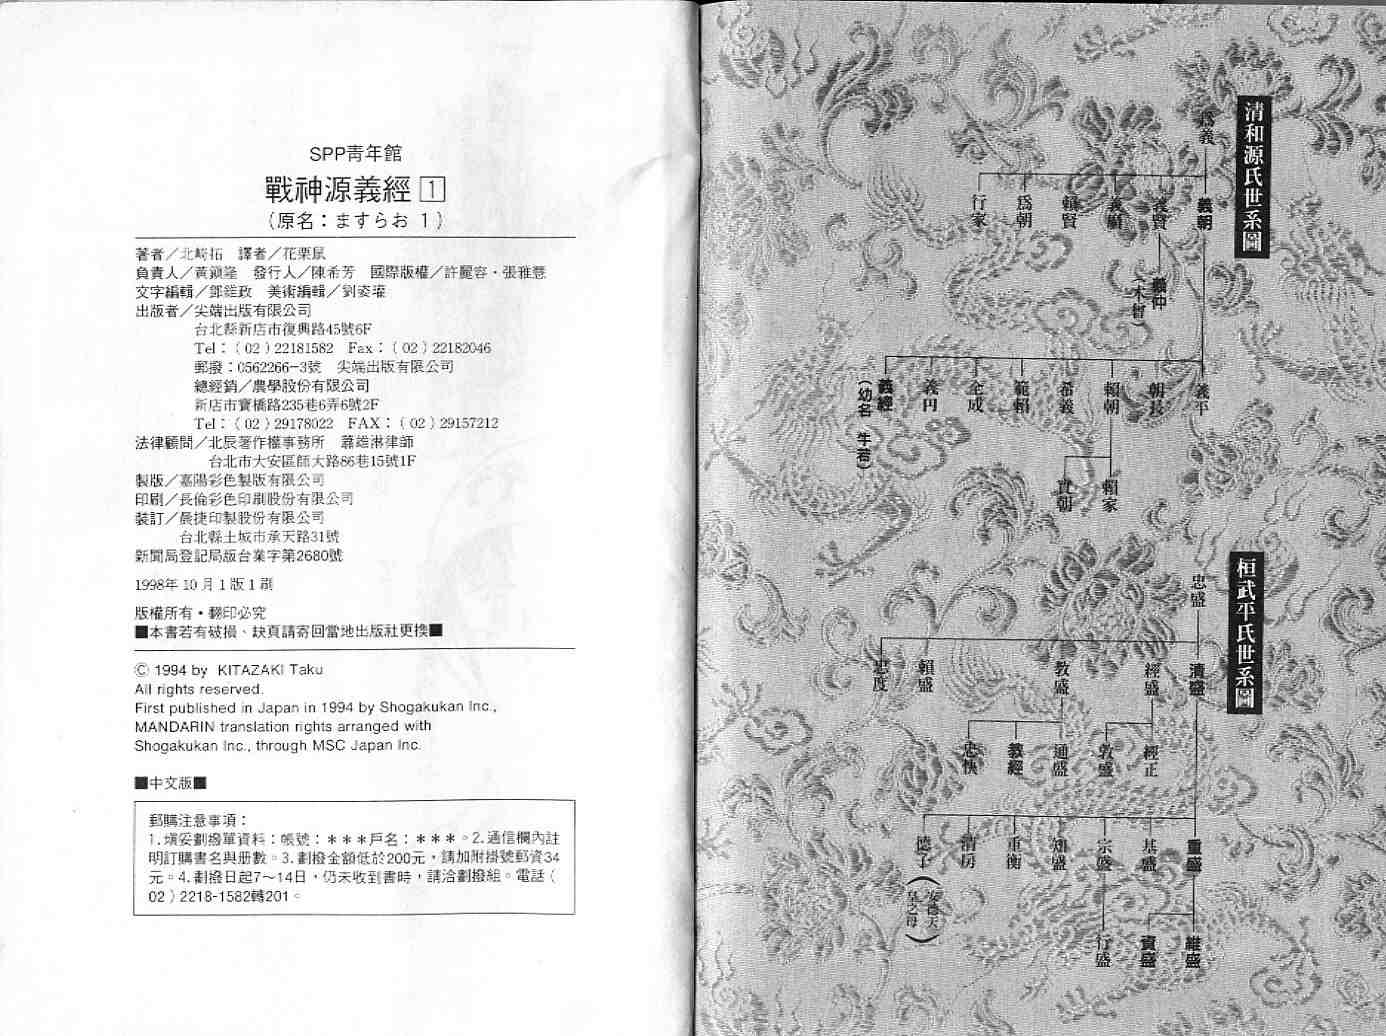 SPP青年館
戰神源義經 1
（原名：ますらお 1）
著者／北崎拓　譯者／花栗鼠
負責人／黃鎮隆　發行人／陳希芳　國際版權／許麗容・張雅慧
文字編輯／鄧維政　美術編輯／劉姿瓊
出版者／尖端出版有限公司
台北縣新店市復興路45號6F
Tel：（02）22181582　Fax：（02）22182046
郵撥：0562266-3號　尖端出版有限公司
總經銷／農學股份有限公司
新店市寶橋路235巷6弄6號2F
Tel：（02）29178022　FAX：（02）29157212
法律顧問／北辰著作權事務所　蕭雄淋律師
台北市大安區師大路86巷15號1F
製版／嘉陽彩色製版有限公司
印刷／長倫彩色印刷股份有限公司
裝訂／晨捷印製股份有限公司
台北縣土城市承天路31號
新聞局登記局版台業字第2680號
1998年 10 月 1 版 1 刷
版權所有・翻印必究
■本書若有破損、缺頁請寄回當地出版社更換■
© 1994 by KITAZAKI Taku
All rights reserved.
First published in Japan in 1994 by Shogakukan Inc.,
MANDARIN translation rights arranged with
Shogakukan Inc., through MSC Japan Inc.
■中文版■
郵購注意事項：
1.填妥劃撥單資料：帳號：＊＊＊戶名：＊＊＊。2.通信欄內註
明訂購書名與冊數。3.劃撥金額低於200元，請加附掛號郵資34
元。4.劃撥日起7～14日，仍未收到書時，請洽劃撥組。電話（
02）2218-1582轉201。
清和源氏世系圖
為義
義朝
義賢
義廣
賴賢
為朝
行家
義仲
（木曾）
義平
朝長
賴朝
希義
範賴
全成
義円
義經
（幼名 牛若）
賴家
實朝
桓武平氏世系圖
忠盛
清盛
經盛
教盛
賴盛
忠度
經正
敦盛
通盛
教經
忠快
重盛
基盛
宗盛
知盛
重衡
清房
德子
（安德天
皇之母）
維盛
資盛
行盛